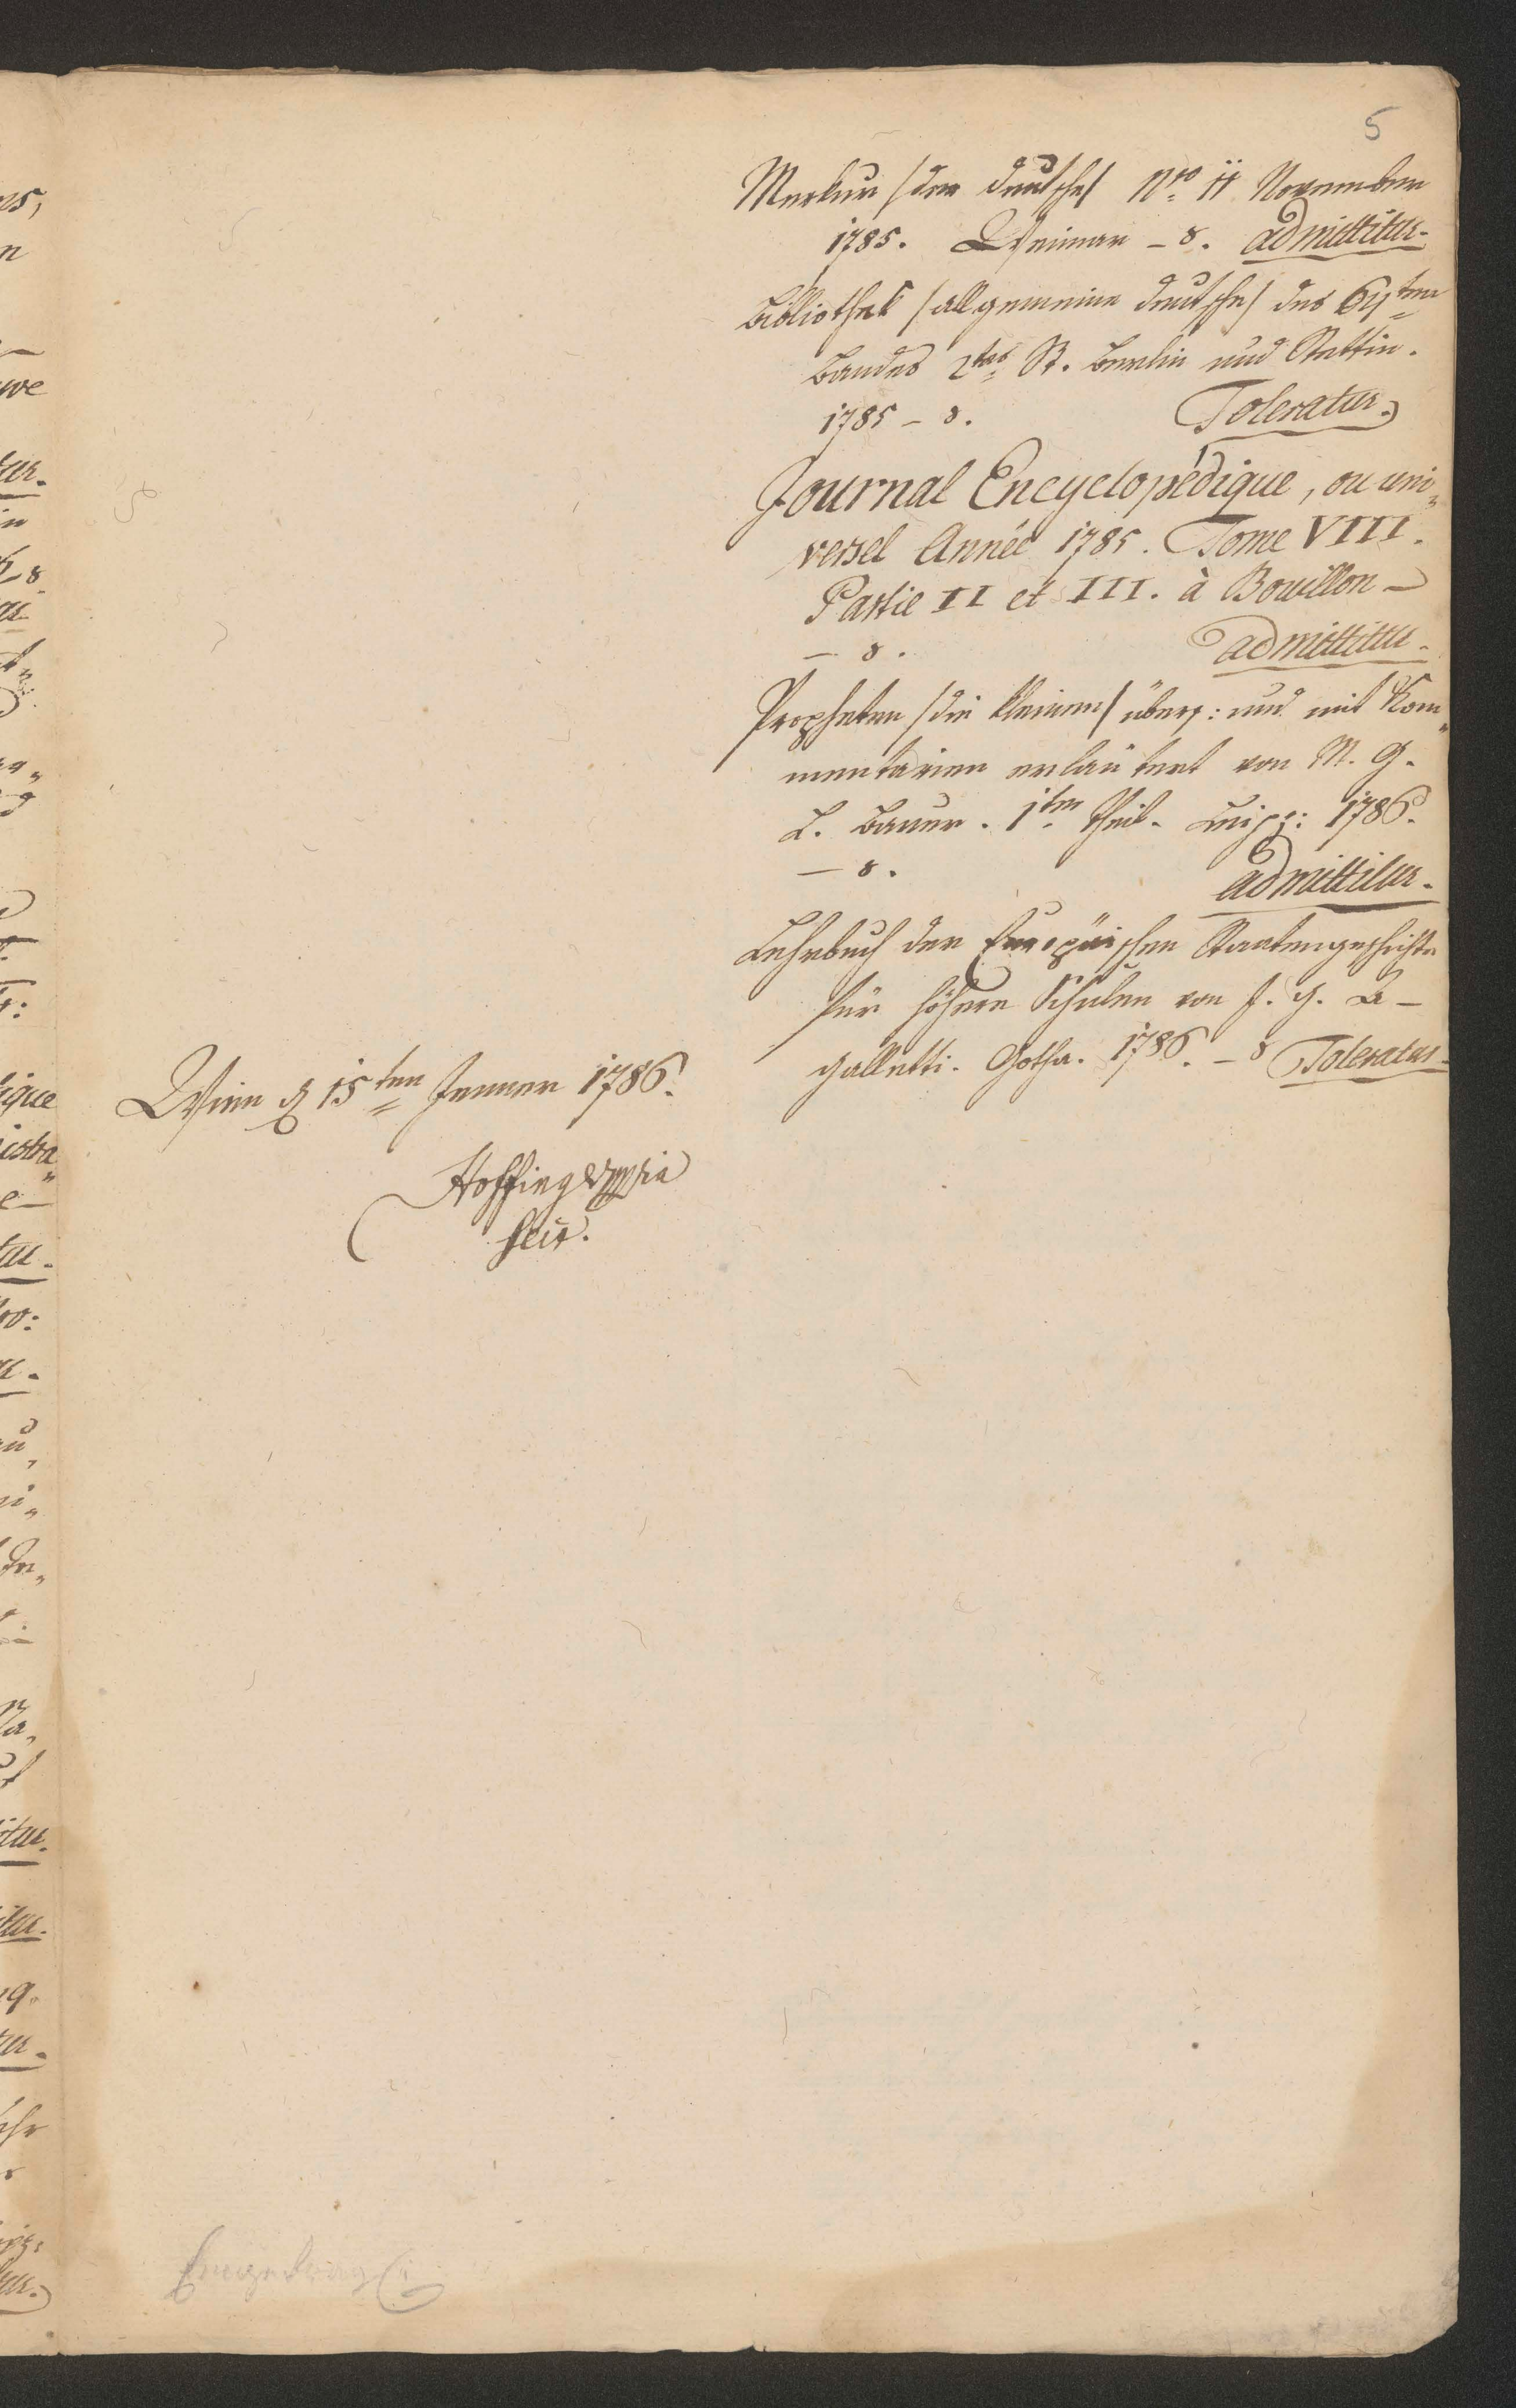 5
Merkur /der deutsche/ Nro 11 November
1785. Weimar – 8. admittitur.
Bibliothek /allgemeine deutsche/ des 64ten
Bandes 2tes St. Berlin und Stettin.
1785 – 8. Toleratur.
Journal Encyclopédique, ou uni„
versel Année 1785. Tome VIII.
Partie II et III. à Bouillon –
– 8. admittitur.
Propheten /die kleinen/ übers: und mit Kom„
mentarien erläutert von M. G.
L. Bauer. 1ter Theil. Leipz: 1786.
– 8. admittitur.
Lehrbuch der Europäischen Staatengeschichte
für höhere Schulen von J. G. A –
Galletti. Gotha. 1786. – 8 Toleratur.
Wien d 15ten Jenner 1786.
Hoffinger
Eingetragen